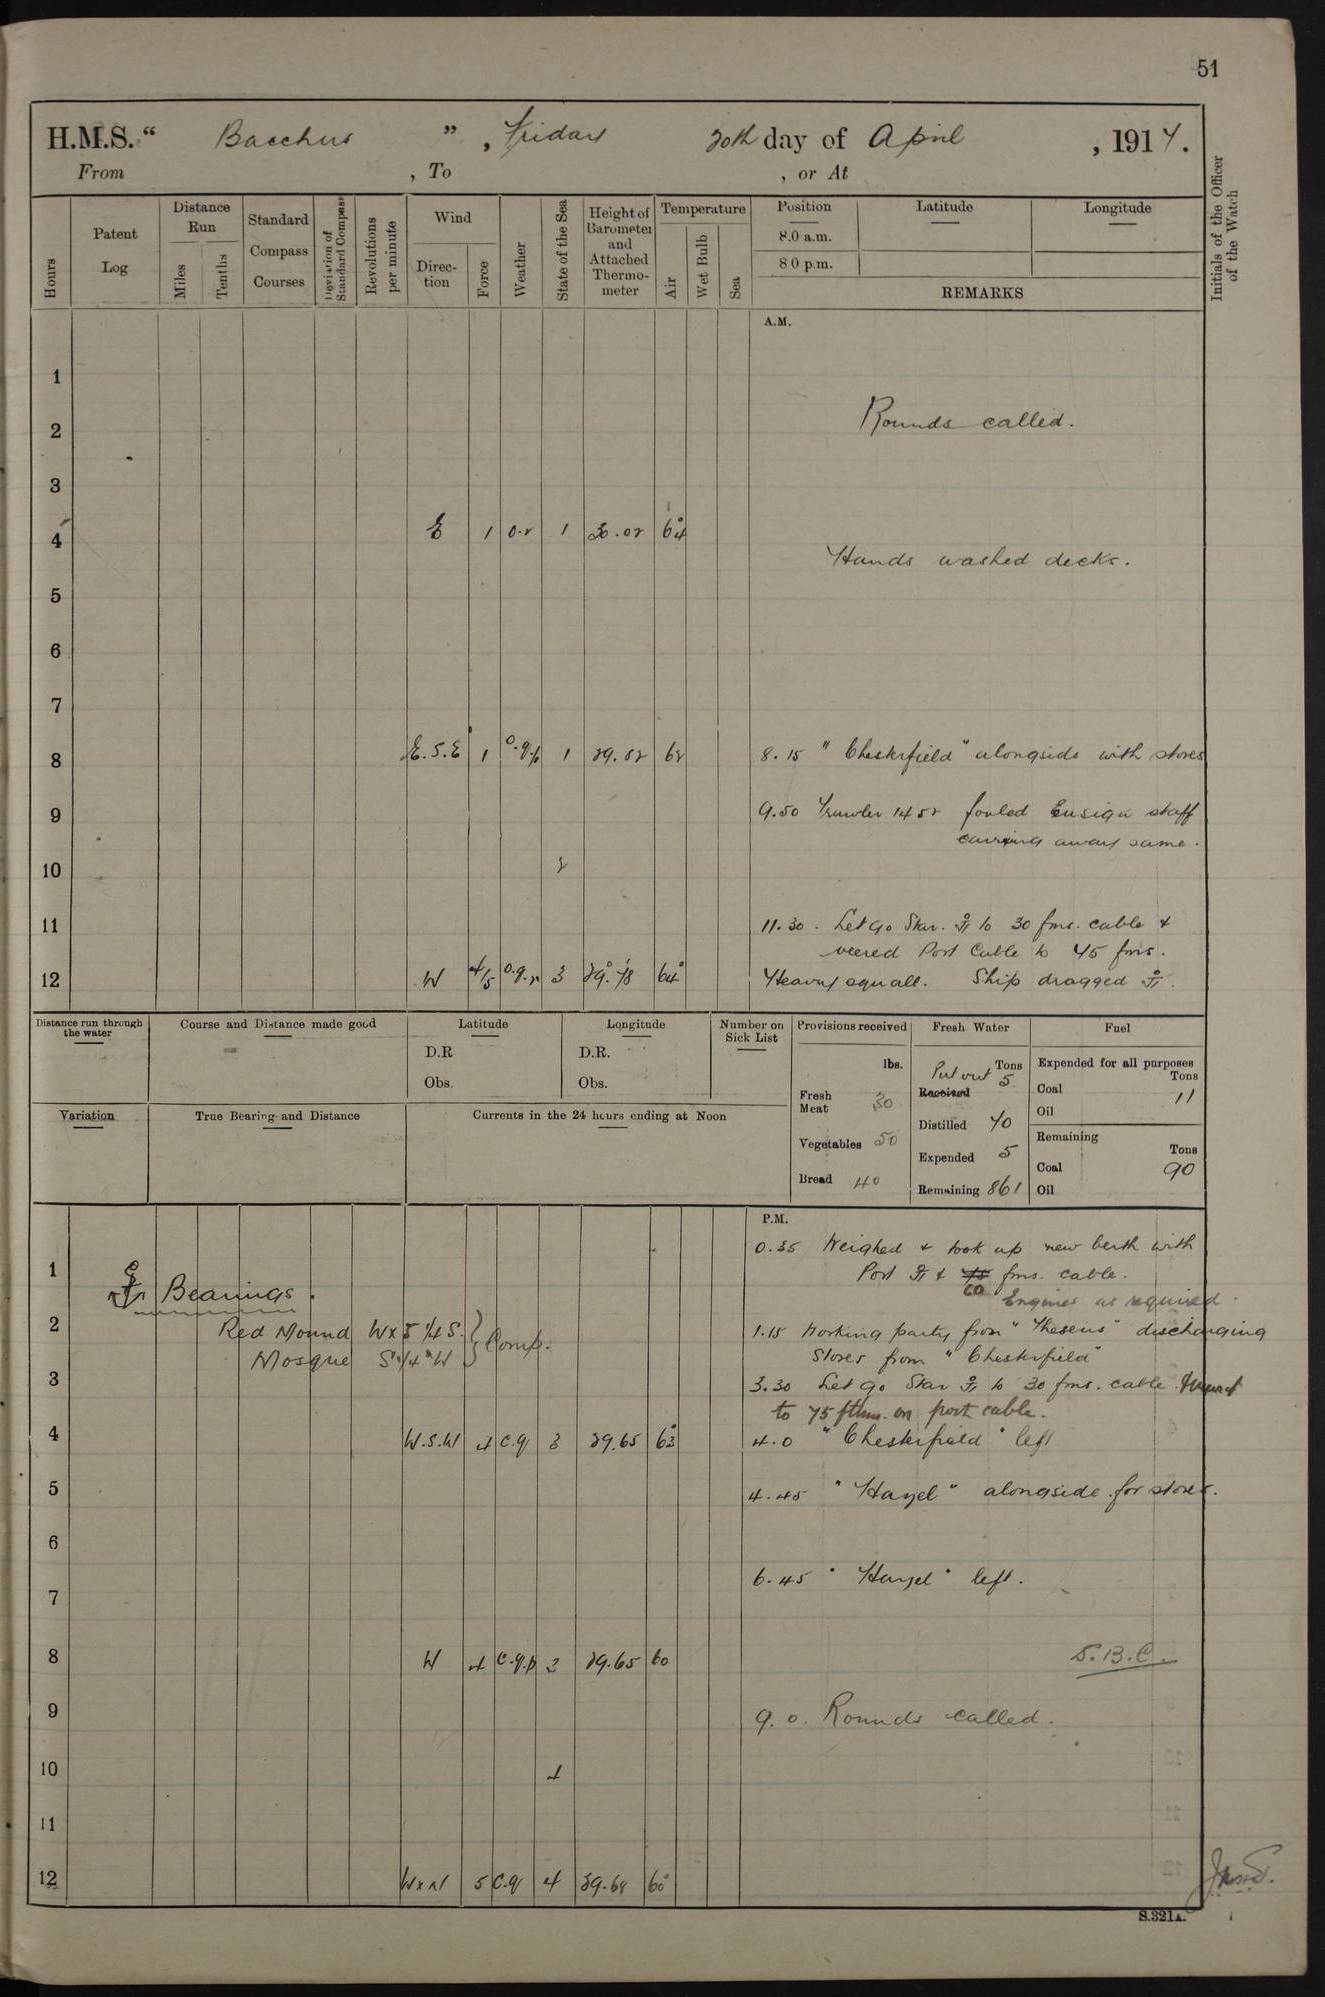 51
H.M.S. “ Bacchus ” , Friday 20th day of April , 1917.
From , To , or At
Hours
Patent Log
Distance Run
Miles
Tenths
Standard Compass Courses
Deviation of Standard Compass
Revolutions per minute
Wind
Direction
Force
Weather
State of the Sea
Height of Barometer and Attached Thermometer
Temperature
Air
Wet Bulb
Sea
Position
Latitude
Longitude
8.0 a.m.
8 0 p.m.
REMARKS
Initials of the Officer of the Watch
A.M.
1
2 Rounds called.
3
4 E 1 o.r 1 30.02 64
Hands washed decks.
5
6
7
8 E.S.E 1 o.q.p 1 29.82 62 8.15 " Chesterfield " alongside with stores
9 9.50 Trawler 1452 fouled Ensign staff
carrying away same.
10 2
11 11.30. Let go Star. to 30 fms. cable &
veered Port Cable to 45 fms.
12 W 4/5 o.q.r 3 29.78 64 Heavy squall. Ship dragged
Distance run through the water
Course and Distance made good
Latitude
D.R
Obs.
Longitude
D.R.
Obs.
Number on Sick List
Provisions received
lbs.
Fresh Meat 30
Vegetables 50
Bread 40
Fresh Water
Tons
Put out 5
Received
Distilled 40
Expended 5
Remaining 861
Fuel
Expended for all purposes
Tons
Coal 11
Oil
Remaining
Tons
Coal 90
Oil
Variation
True Bearing and Distance
Currents in the 24 hours ending at Noon
P.M.
0.35 Weighed & took up new berth with
1 Port & 45 fms. cable.
60
Bearings. Engines as required.
2 Red Mound W x S 1/4 S. } Comp. 1.15 Working party from " Theseus " discharging
Mosque S 1/4 W Stores from " Chesterfield "
3 3.30 Let go Star to 30 fms. cable
to 75 fthms. on port cable.
4 W.S.W 4 c.q 3 29.65 63 4.0 " Chesterfield " left
5 4.45 " Hazel " alongside for stores.
6
6.45 " Hazel " left.
7
8 W 4 c.q.p 3 29.65 60 S.B.C.
9 9.0. Rounds called.
10 4
11
12 W x N 5 c.q 4 29.68 60
S.321A.